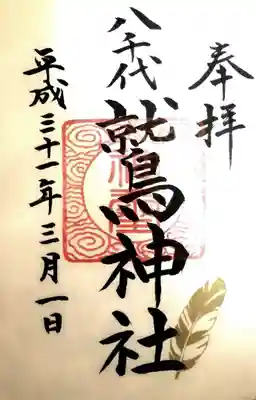 奉拝
八千代鷲神社
平成三十一年三月一日